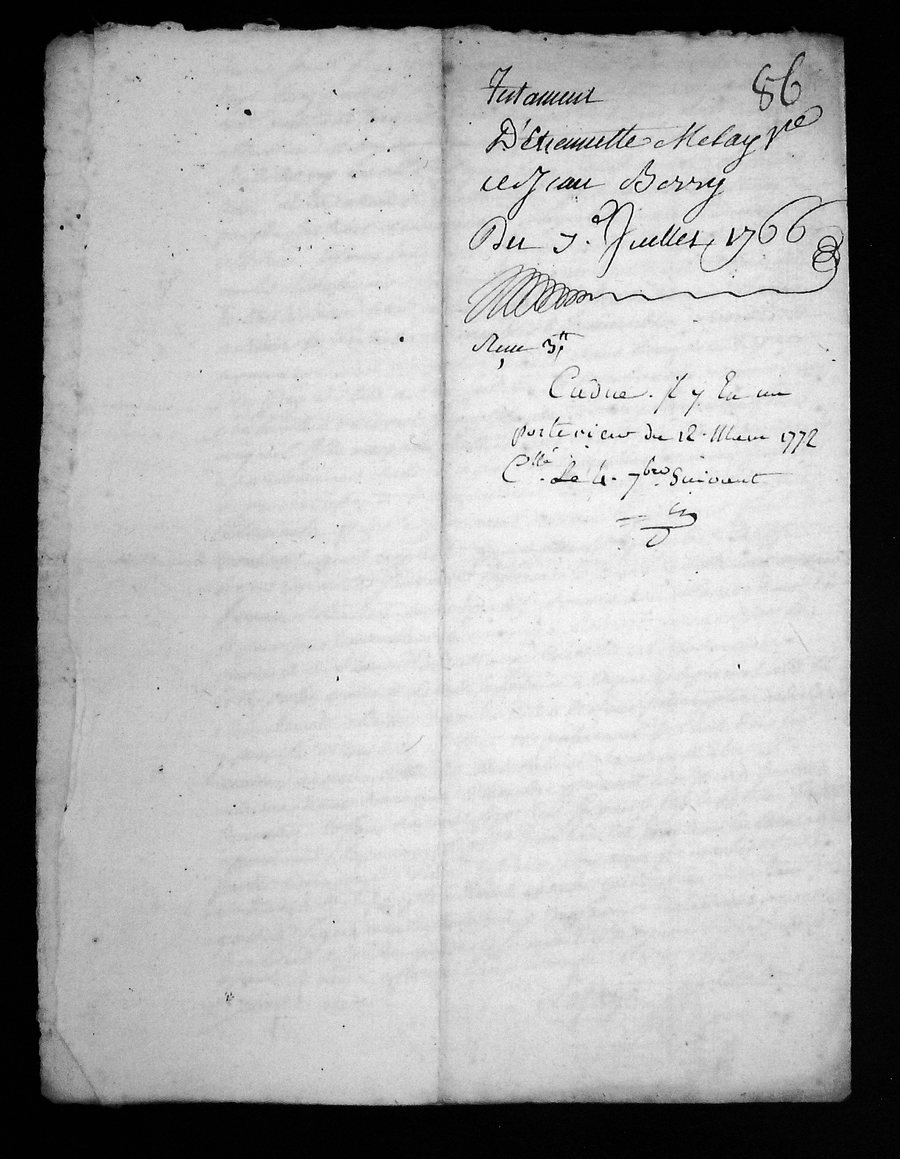 86
Testament
D'Etiennette Melay v.e
de Jean Berry
Du 7.e Juillet 1766
Reçu 3tt
Cadue. il y En a un
posterieur du 12. Mars 1772
C.llé Le 4. 7bre Suivant